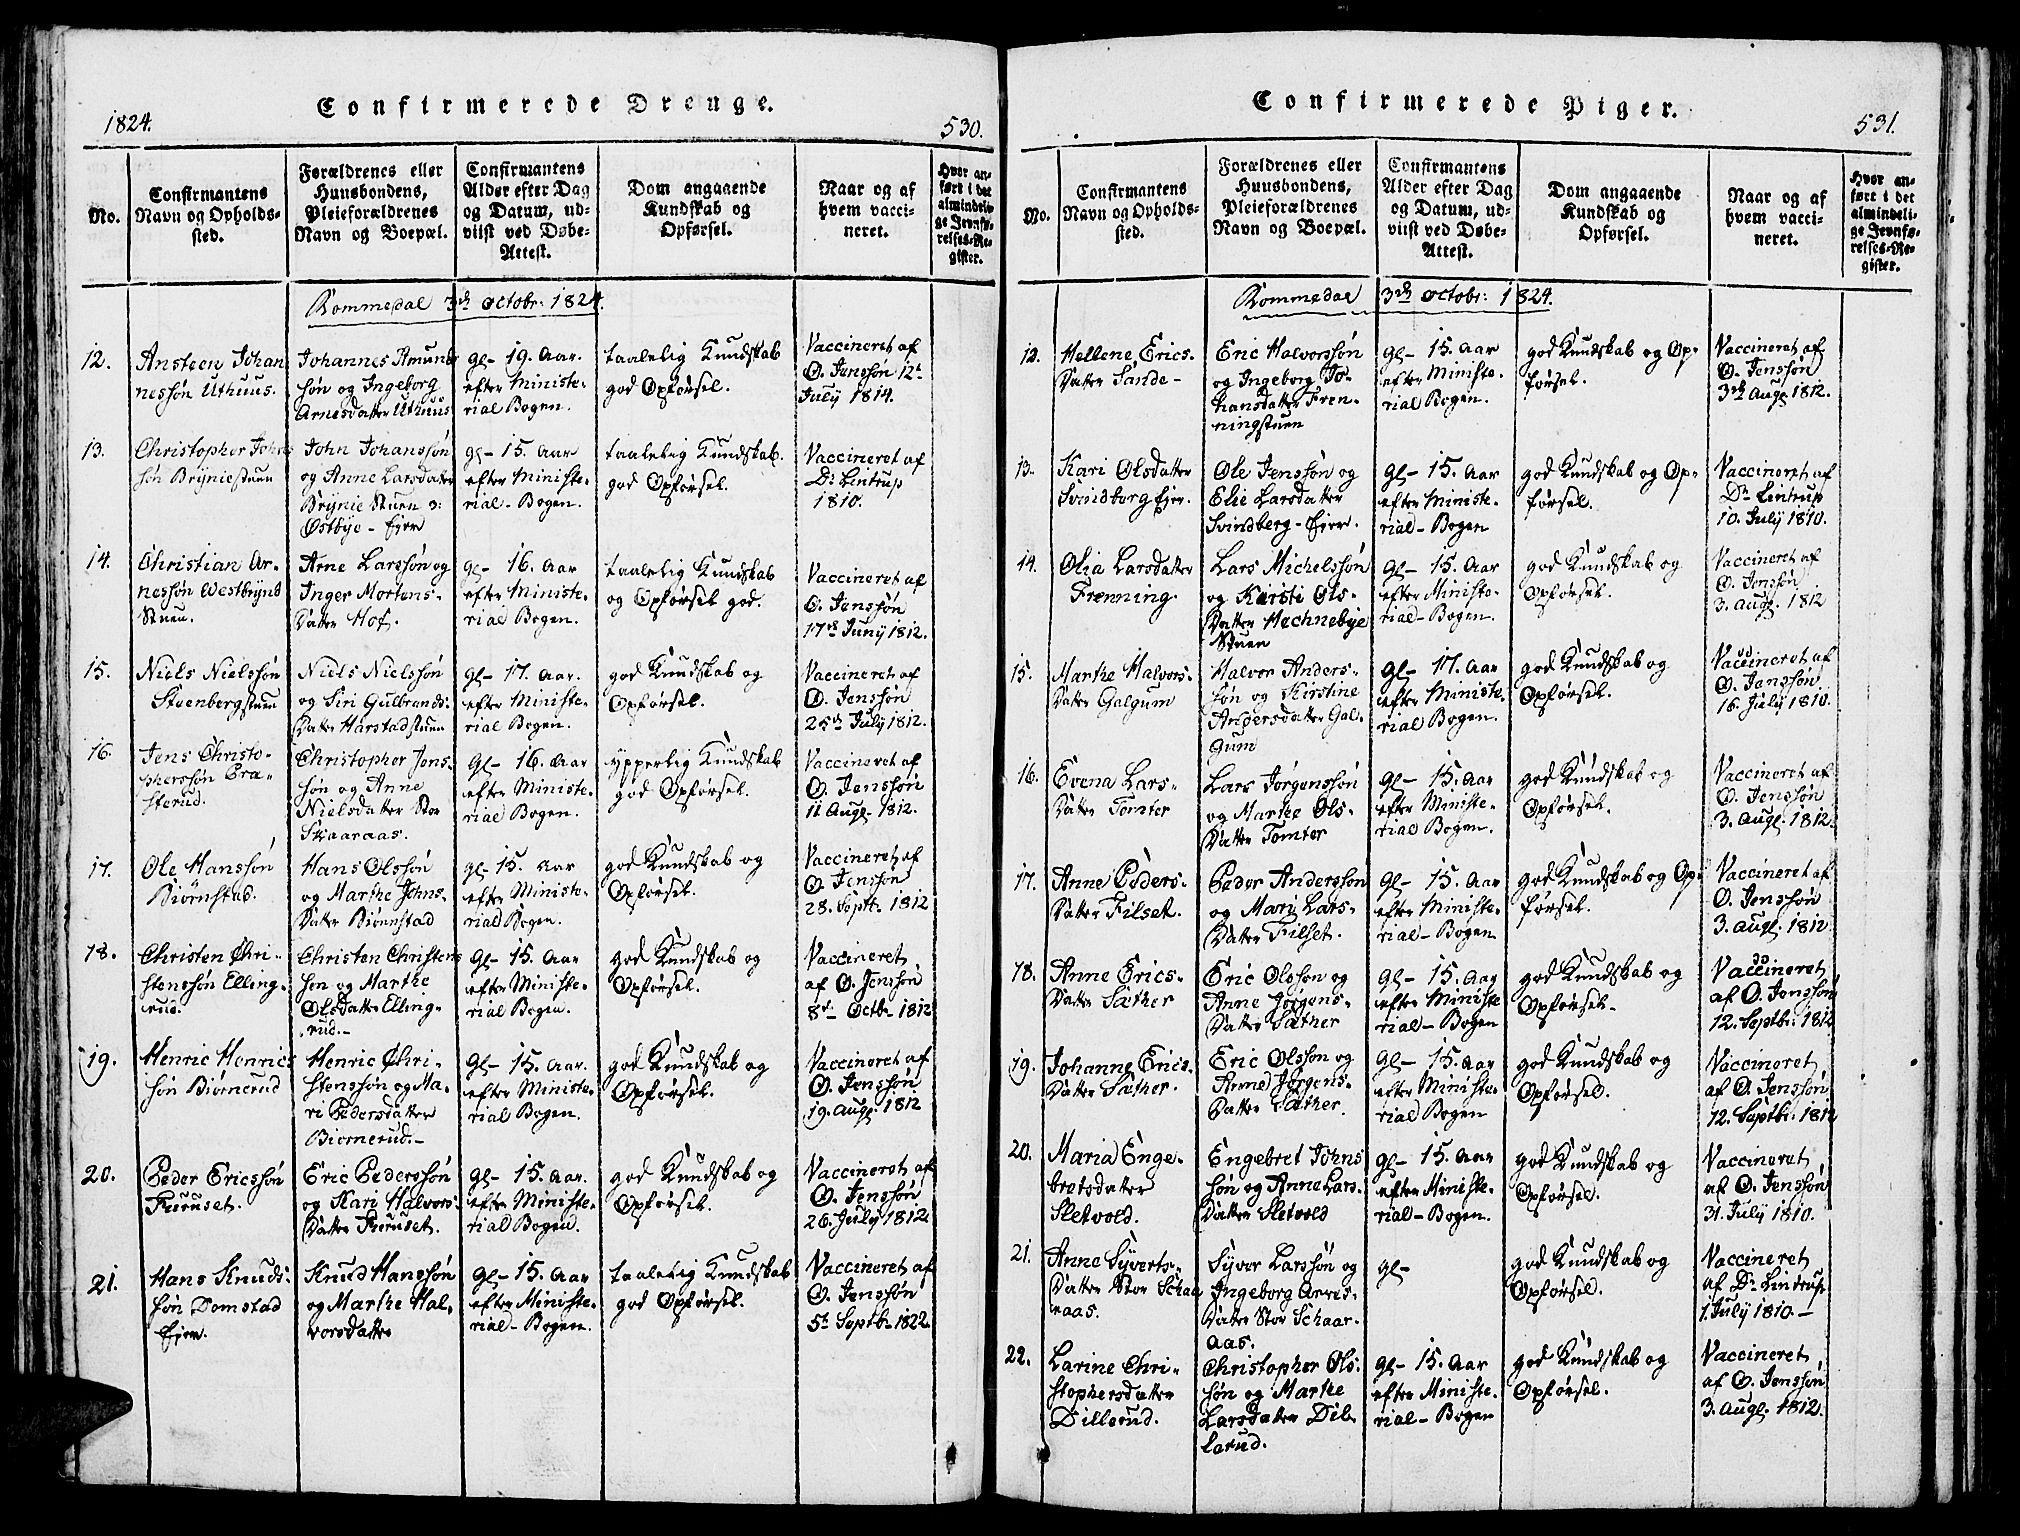 1824.
Confirmerede Drenge.
530.
No.
Confirmantens
Navn og Opholds-
sted.
Forældrenes eller
Huusbondens,
Pleieforældrenes
Navn og Boepæl.
Confirmantens
Alder efter Dag
og Datum, ud-
viist ved Døbe-
Attest.
Dom angaaende
Kundskab og
Opførsel.
Naar og af
hvem vacci-
neret.
Hvor an-
ført i det
almindeli-
ge Jevnfø-
relses-Re-
gister.
Rommedal 3de Octobr: 1824.
12.
Ansteen Johan
nessøn Uthuus.
Johannes Amunds
søn og Ingeborg
Arnesdatter Uthuus
Gl- 19. Aar.
efter Ministe-
rial Bogen.
taalelig Kundskab
god Opførsel.
Vaccineret af
O. Jenssøn 12t
July 1814.
13.
Christopher Johns
søn Brÿniestuen
John Johanssøn
og Anne Larsdatter
Brÿnie Stuen
Østbÿe - Eier
gl- 15. Aar
efter Ministe-
rial- Bogen.
taalelig Kundskab.
god Opførsel.
Vaccineret af
Dr Lintrup
1810.
14.
Christian Ar-
nessøn Westbÿnd
Stuen.
Arne Larssøn og
Inger Mortens-
Datter Hof.
gl- 16. Aar
efter Ministe-
rial Bogen.
taalelig Kundskab
og Opførsel god.
Vaccineret af
O. Jenssøn
17de Juny 1812.
15.
Niels Nielssøn
Steenbergstuen
Niels Nielssøn
og Siri Gulbrands-
Datter Harstadstuen
Gl- 17. Aar.
efter Ministe-
rial Bogen.
god Kundskab og
Opførsel.
Vaccineret af
O. Jenssøn
25de July 1812.
16.
Jens Christo-
pherssøn Bra-
sterud.
Christopher Jens-
søn og Anne
Nielsdatter Stor
Skaaraas.
Gl- 16. Aar
efter Ministe-
rial Bogen.
ypperlig Kundskab
god Opførsel.
Vaccineret af
O. Jenssøn
11 Augt- 1812.
17.
Ole Hanssøn
Biørnstad.
Hans Olssøn
og Marthe Johns-
Datter Biørnstad
gl- 15. Aar
efter Ministe-
rial Bogen.
god Kundskab og
Opførsel.
Vaccineret af
O. Jenssøn
28. Septb- 1812
18.
Christen Chri-
stenssøn Elling-
rud.
Christen Christens
søn og Marthe
Olsdatter Elling-
rud.-
Gl- 15. Aar
efter Ministe-
rial Bogen.
god Kundskab og
Opførsel.
Vaccineret
af O. Jenssøn
8de- Octb- 1812
19.
Henric Henrics
søn Biørnerud
Henric Chri-
stenssøn og Ma-
ri Pedersdatter
Biørnerud.-
Gl- 15. Aar.
efter Ministe-
rial Bogen.
god Kundskab og
Opførsel.
Vaccineret af
O. Jenssøn
19. Augt 1812
20.
Peder Ericssøn
Furuset.
Eric Pederssøn
og Kari Halvors-
Datter Furuset.
Gl- 15. Aar.
efter Ministe-
rial Bogen.
god Kundskab og
Opførsel.
Vaccineret af
O. Jenssøn
26. July 1812.
21.
Hans Knuds-
søn Domstad
Eier.
Knud Hanssøn
og Marthe Hal-
vorsdatter
Gl- 15. Aar
efter Ministe-
rial- Bogen.
taalelig Kundskab
god Opførsel.
Vaccineret af
O. Jenssøn
5t Septb- 1822.
Confirmerede Piger.
531.
No.
Confirmantens
Navn og Opholds-
sted.
Forældrenes eller
Huusbondens,
Pleieforældrenes
Navn og Boepæl.
Confirmantens
Alder efter Dag
og Datum, ud-
viist ved Døbe-
Attest.
Dom angaaende
Kundskab og
Opførsel.
Naar og af
hvem vacci-
neret.
Hvor an-
ført i det
almindeli-
ge Jevnfø-
relses-Re-
gister.
Rommedal 3de Octobr: 1824.
12.
Hellene Erics-
Datter Sande-
Eric Halvorssøn
og Ingeborg Jo-
hansdatter Fren-
ningstuen
Gl- 15. Aar
efter Ministe-
rial Bogen.
god Kundskab og Op-
førsel.
Vaccineret af
O. Jenssøn
3de Augt 1812.
13.
Kari Olsdatter
Svindborg Eier.
Ole Jenssøn og
Elie Larsdatter
Svindberg- Eier.
Gl- 15. Aar
efter Ministe-
rial- Bogen
god Kundskab og Op-
førsel.
Vaccineret af
Dr Lintrup
10. July 1810.
14.
Olia Larsdatter
Frenning.
Lars Michelssøn
og Kirsti Ols-
Datter Hechnebye
Stuen
Gl- 15. Aar
efter Ministe-
rial- Bogen.
god Kundskab og
Opførsel.
Vaccineret af
O. Jenssøn
3. Augt. 1812
15.
Marthe Halvors-
Datter Galgum
Halvor Anders-
søn og Kirstine
Andersdatter Gal-
gum
Gl- 17. Aar
efter Ministe-
rial Bogen.
god Kundskab og
Opførsel.
Vaccineret af
O. Jenssøn
16. July 1810.
16.
Evena Lars-
Datter Tomter
Lars Jørgenssøn
og Marthe Ols-
Datter Tomter
Gl- 15. Aar
efter Ministe-
rial Bogen.
god Kundskab og
Opførsel.
Vaccineret af
O. Jenssøn
3. Augt. 1812.
17.
Anne Peders-
Datter Filset.
Peder Anderssøn
og Mari Lars-
Datter Filset.
Gl- 15. Aar
efter Ministe-
rial- Bogen
god Kundskab og Op-
førsel.
Vaccineret af
O. Jenssøn
3. Augt. 1812
18.
Anne Erics-
Datter Sæther
Eric Olsson og
Anne Jørgens-
Datter Sæther
Gl- 15. Aar
efter Ministe
rial- Bogen
god Kundskab og
Opførsel-
Vaccineret
af O. Jenssøn
12. Septbr: 1812
19.
Johanne Erics-
Datter Sæther.
Eric Olsson og
Anne Jørgens-
Datter Sæther.
Gl- 15. Aar
efter Ministe-
rial Bogen
god Kundskab og
Opførsel.
Vaccineret
af O. Jenssøn
12. Septbr: 1812
20.
Maria Enge-
bretsdatter
Sletvold.
Engebret Johns
søn og Anne Lars-
Datter Sletvold
Gl- 15. Aar
efter Ministe-
rial- Bogen.
god Kundskab og
Opførsel.
Vaccineret
af O. Jenssøn
31. July 1810.
21.
Anne Syverts-
Datter Stor Schaa
raas.
Syver Larssøn og
Ingeborg Arnes-
Datter Stor Schaar-
aas.
gl-
god Kundskab og
Opførsel.
Vaccineret
af Dr Lintrup
1. July 1810-
22.
Larine Chri-
stophersdatter
Dillerud.
Christopher Ols-
søn og Marthe
Larsdatter Dil-
lerud.
Gl- 15. Aar
efter Ministe-
rial- Bogen
god Kundskab og
Opførsel.
Vaccineret
af O. Jenssøn
3. Augt. 1812.